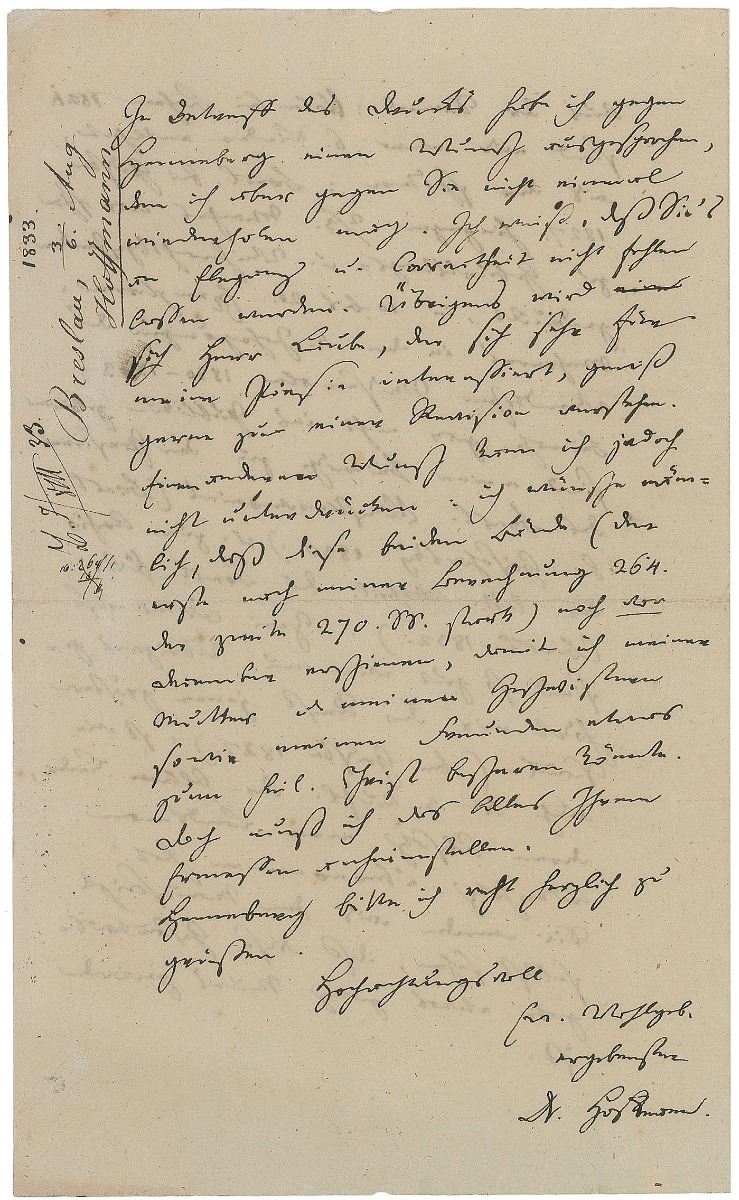 In Betreff des Drucks habe ich gegen
Henneberg einen Wunsch ausgesprochen,
den ich aber gegen Sie nicht einmal
wiederholen mag. Ich weiß, daß Sie's
an Eleganz u. Correctheit nicht fehlen
lassen werden. Übrigens wird
sich Herr Laube, der sich sehr für
meine Poesie interessiert, gewiß
gerne zur einer Revision verstehen.
Einen anderen Wunsch kann ich jedoch
nicht unterdrücken: ich wünsche näm=
lich, daß diese beiden Bände (der
erste nach meiner Berechnung 264.
der zweite 270. SS. stark) noch vor
December erschienen, damit ich meiner
Mutter u meinen Geschwistern
sowie meinen Freunden etwas
zum heil. Christ bescheren könnte.
Doch muß ich das Alles Ihrem
Ermessen anheimstellen.
Henneberg bitte ich recht herzlich zu
grüßen.
Hochachtungsvoll
Ew. Wohlgeb.
ergebenster
Dr. Hoffmann.
1833.
Breslau, 3/6. Aug
Hoffmann
VIII 33.